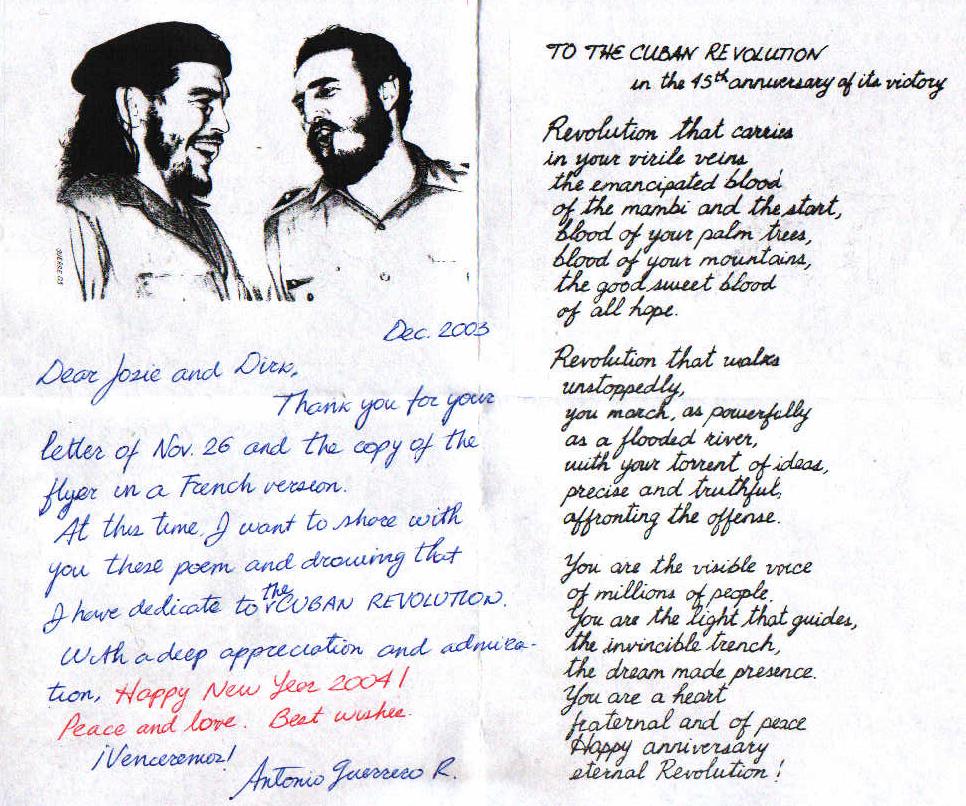 Dec. 2003
Dear Josie and Dirk,
Thank you for your
letter of Nov. 26 and the copy of the
flyer in a French version.
At this time, I want to share with
you these poem and drawing that
I have dedicate to the CUBAN REVOLUTION.
With a deep appreciation and admira-
tion, Happy New Year 2004!
Peace and love. Best wishes.
¡Venceremos!
Antonio Guerrero R.
TO THE CUBAN REVOLUTION
in the 45th anniversary of its victory
Revolution that carries
in your virile veins
the emancipated blood
of the mambi and the start,
blood of your palm trees,
blood of your mountains,
the good sweet blood
of all hope.
Revolution that walks
unstoppedly,
you march, as powerfully
as a flooded river,
with your torrent of ideas,
precise and truthful,
affronting the offense.
You are the visible voice
of millions of people.
You are the light that guides,
the invincible trench,
the dream made presence.
You are a heart
fraternal and of peace
Happy anniversary
eternal Revolution!